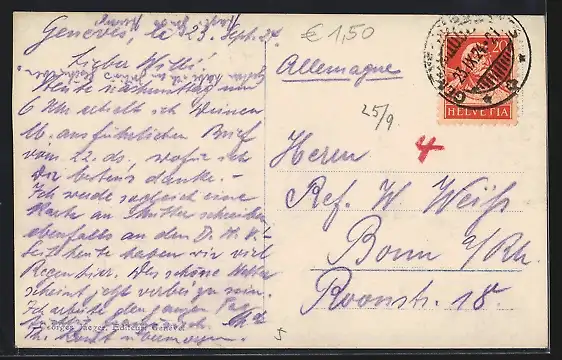 Genève, le 23. Sept. 24
Lieber Willi!
Heute nachmittag um
6 Uhr erhielt ich Deinen
lb. ausführlichen Brief
vom 22. ds., wofür ich
Dir bestens danke. –
Ich werde sogleich eine
Karte an Mutter schreiben
ebenfalls an den D. H. V.!
Seit heute haben wir viel
Regen hier. Das schöne Wetter
scheint jetzt vorbei zu sein.
Ich arbeite den ganzen Tag
Georges Jaeger, Editeur, Genève
€ 1,50
Allemagne
25/9
4
Herrn
Ref. W. Weiß
Bonn a/Rh.
Roonstr. 18
20
HELVETIA